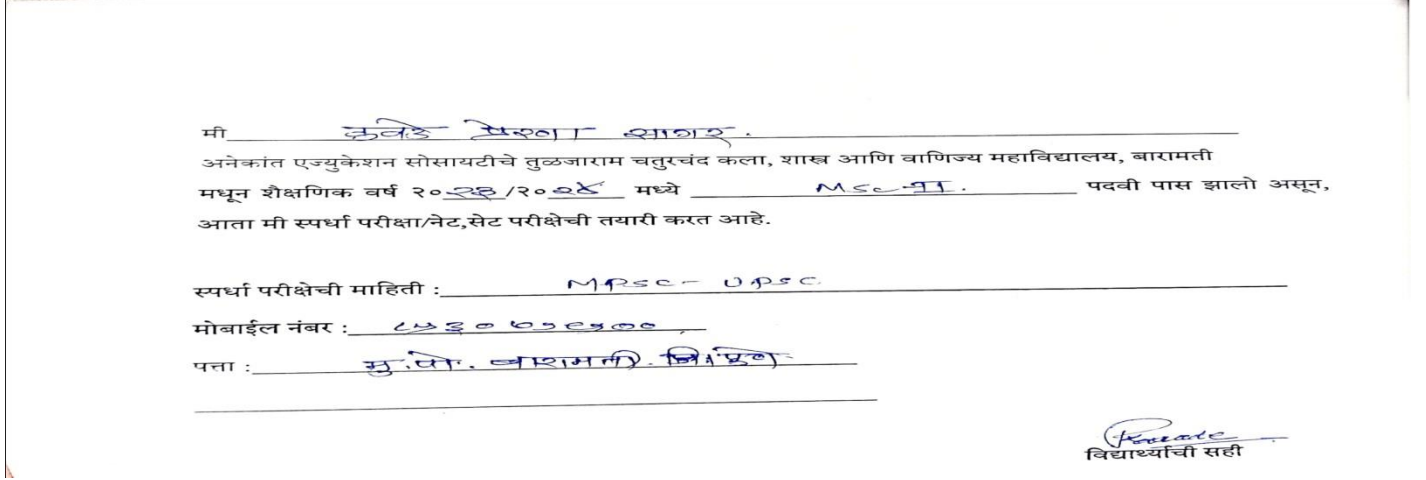 मी कवडे प्रेरणा सागर.
अनेकांत एज्युकेशन सोसायटीचे तुळजाराम चतुरचंद कला, शास्त्र आणि वाणिज्य महाविद्यालय, बारामती
मधून शैक्षणिक वर्ष २०२३/२०२४ मध्ये MSc-II. पदवी पास झालो असून,
आता मी स्पर्धा परीक्षा/नेट,सेट परीक्षेची तयारी करत आहे.
स्पर्धा परीक्षेची माहिती : MPSC- UPSC
मोबाईल नंबर :
पत्ता : मु.पो. बारामती. जि. पुणे
विद्यार्थ्याची सही